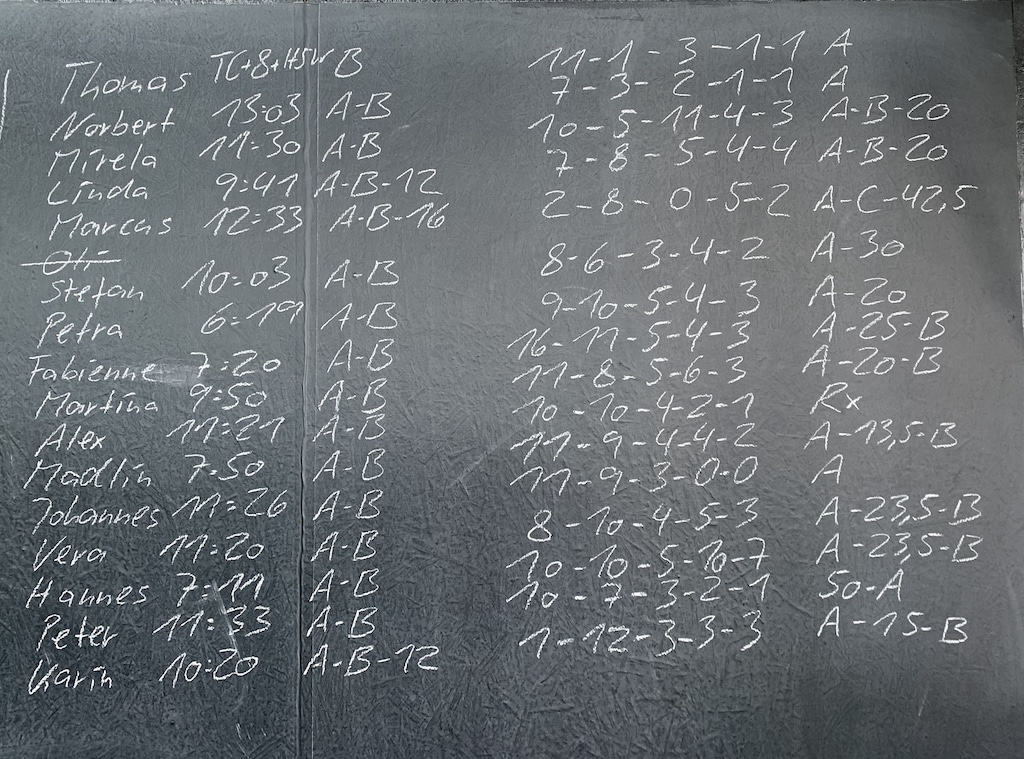 Thomas TC+8+HSW B 11-1-3-1-1 A
Norbert 13:03 A-B 7-3-2-1-1 A
Mirela 11:30 A-B 10-5-11-4-3 A-B-20
Linda 9:41 A-B-12 7-8-5-4-4 A-B-20
Marcus 12:33 A-B-16 2-8-0-5-2 A-C-42,5
Stefan 10:03 A-B 8-6-3-4-2 A-30
Petra 6:19 A-B 9-10-5-4-3 A-20
Fabienne 7:20 A-B 16-11-5-4-3 A-25-B
Martina 9:50 A-B 11-8-5-6-3 A-20-B
Alex 11:21 A-B 10-10-4-2-1 Rx
Madlin 7:50 A-B 11-9-4-4-2 A-13,5-B
Johannes 11:26 A-B 11-9-3-0-0 A
Vera 11:20 A-B 8-10-4-5-3 A-23,5-B
Hannes 7:11 A-B 10-10-5-16-7 A-23,5-B
Peter 11:33 A-B 10-7-3-2-1 50-A
Karin 10:20 A-B-12 1-12-3-3-3 A-15-B